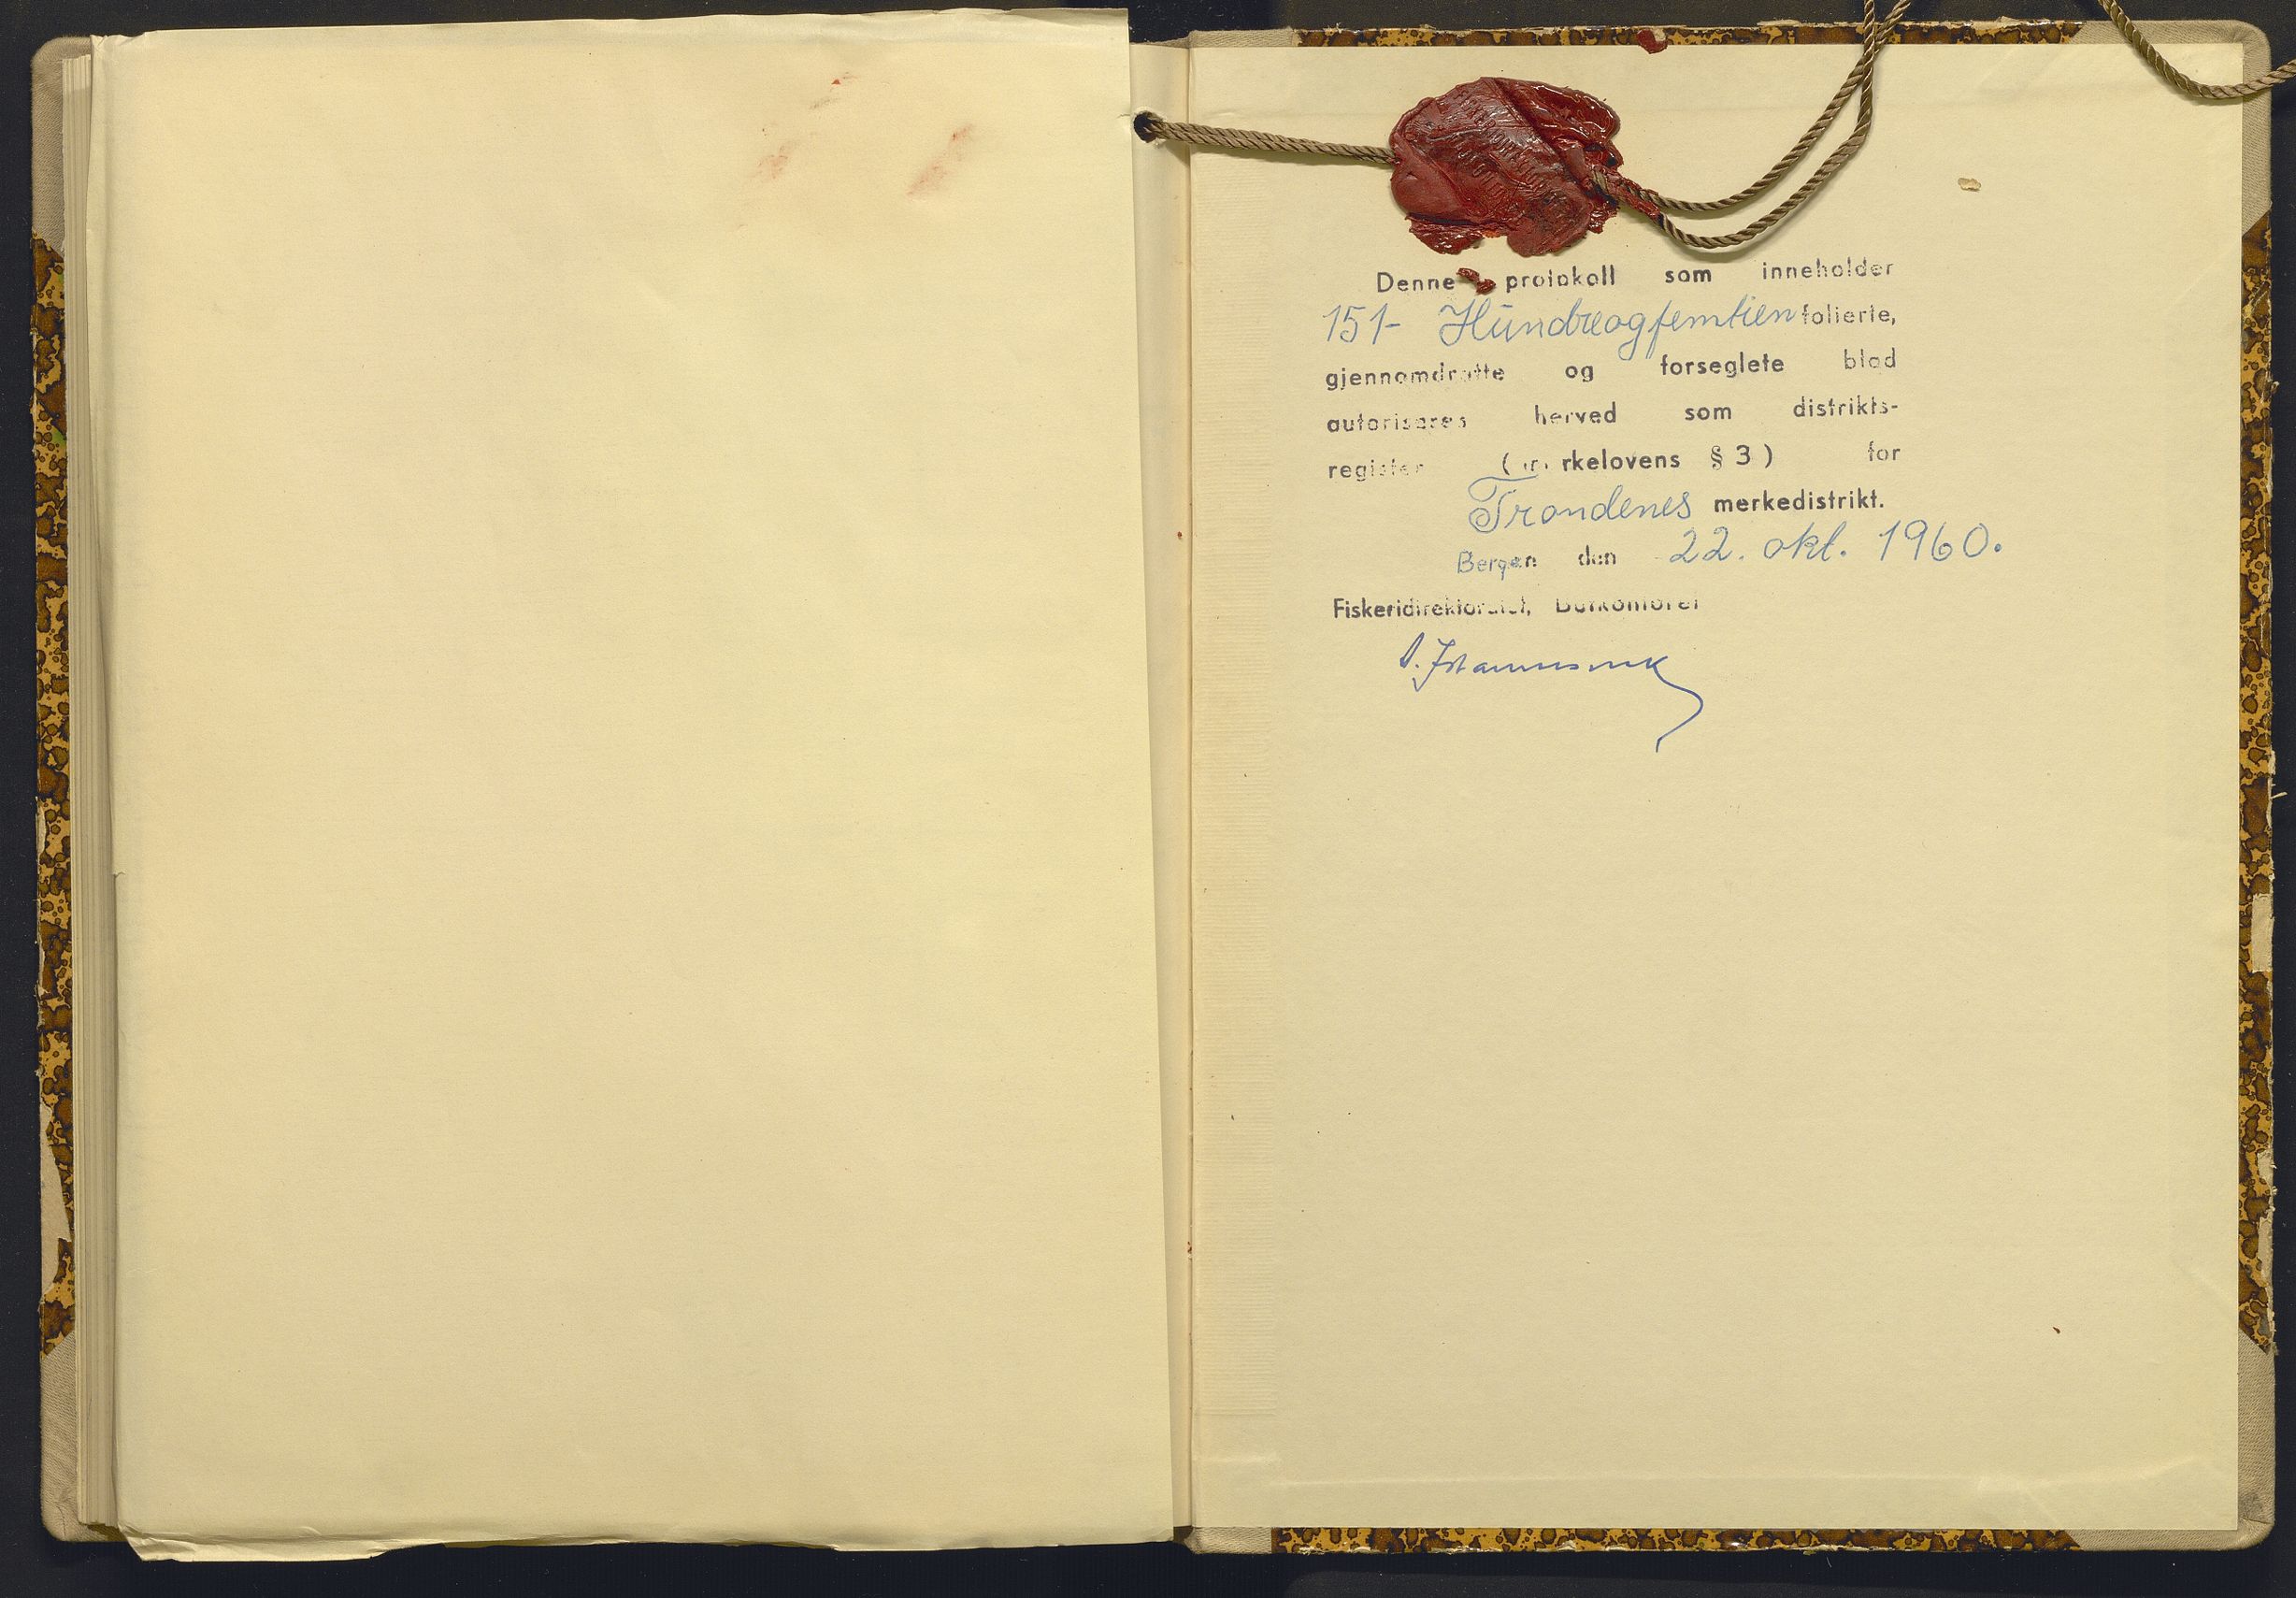 Denne protokoll som inneholder
151- Hundreogfemtien folierte,
gjennomdratte og forseglete blad
autoriseres herved som distrikts-
register (merkelovens § 3) for
Trondenes merkedistrikt.
Bergen den 22. okt. 1960.
Fiskeridirektoratet,